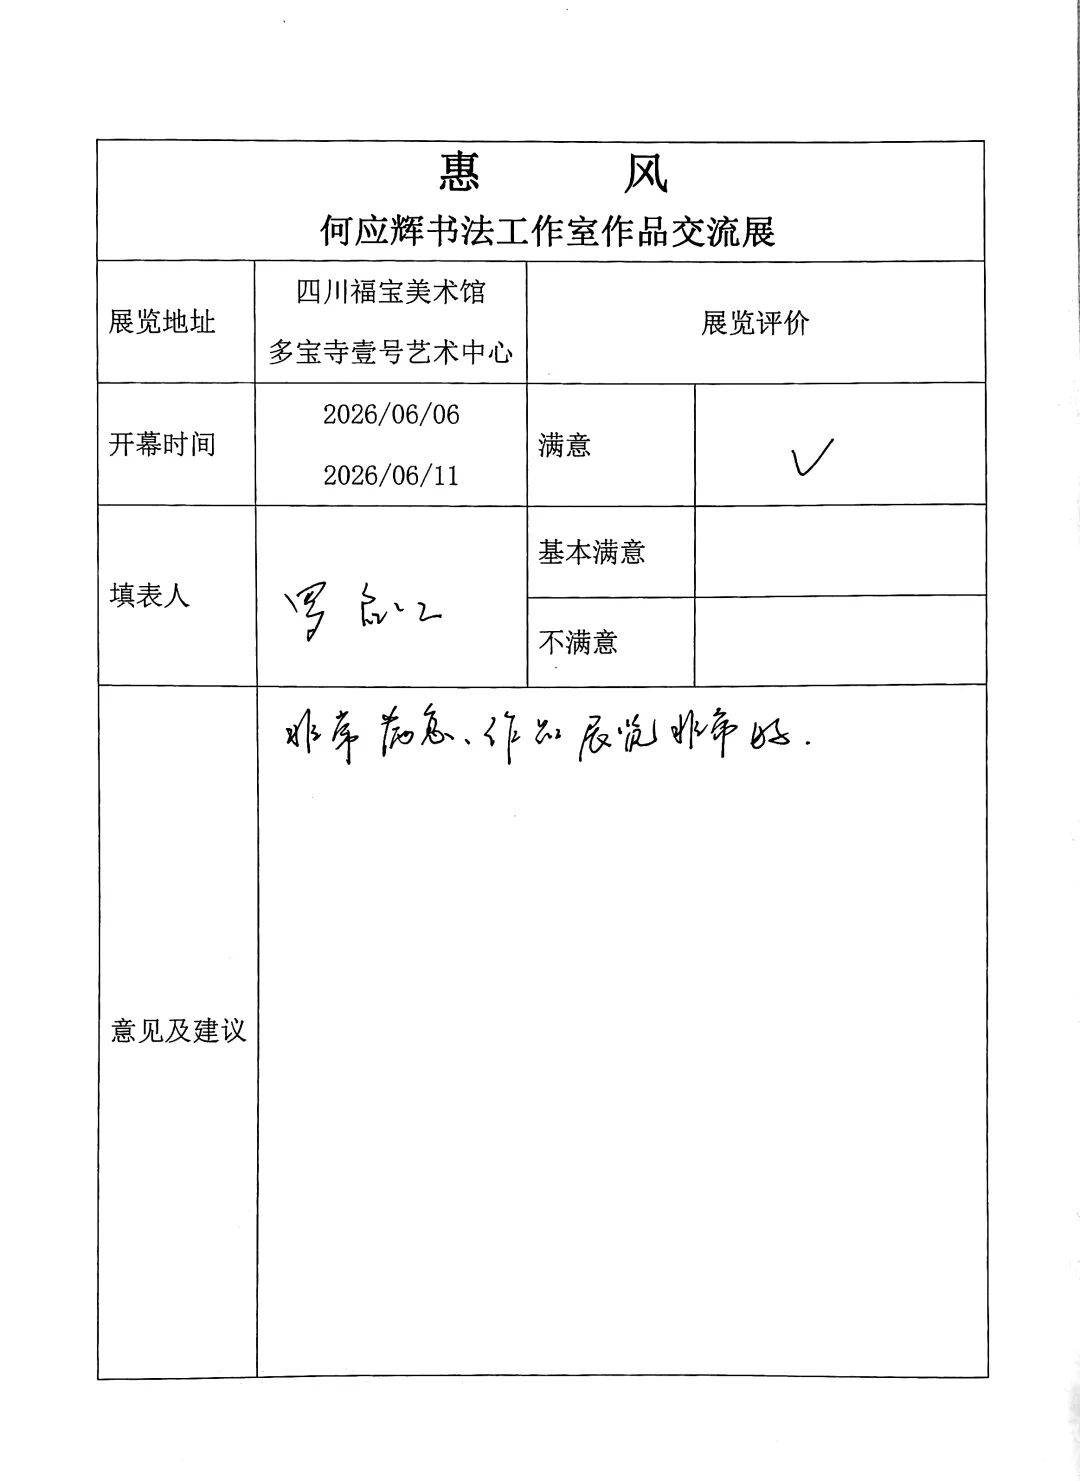 惠 风
何应辉书法工作室作品交流展
展览地址
四川福宝美术馆
多宝寺壹号艺术中心
展览评价
开幕时间
2026/06/06
2026/06/11
满意
✓
填表人
罗
基本满意
不满意
意见及建议
非常满意、作品展览非常好.